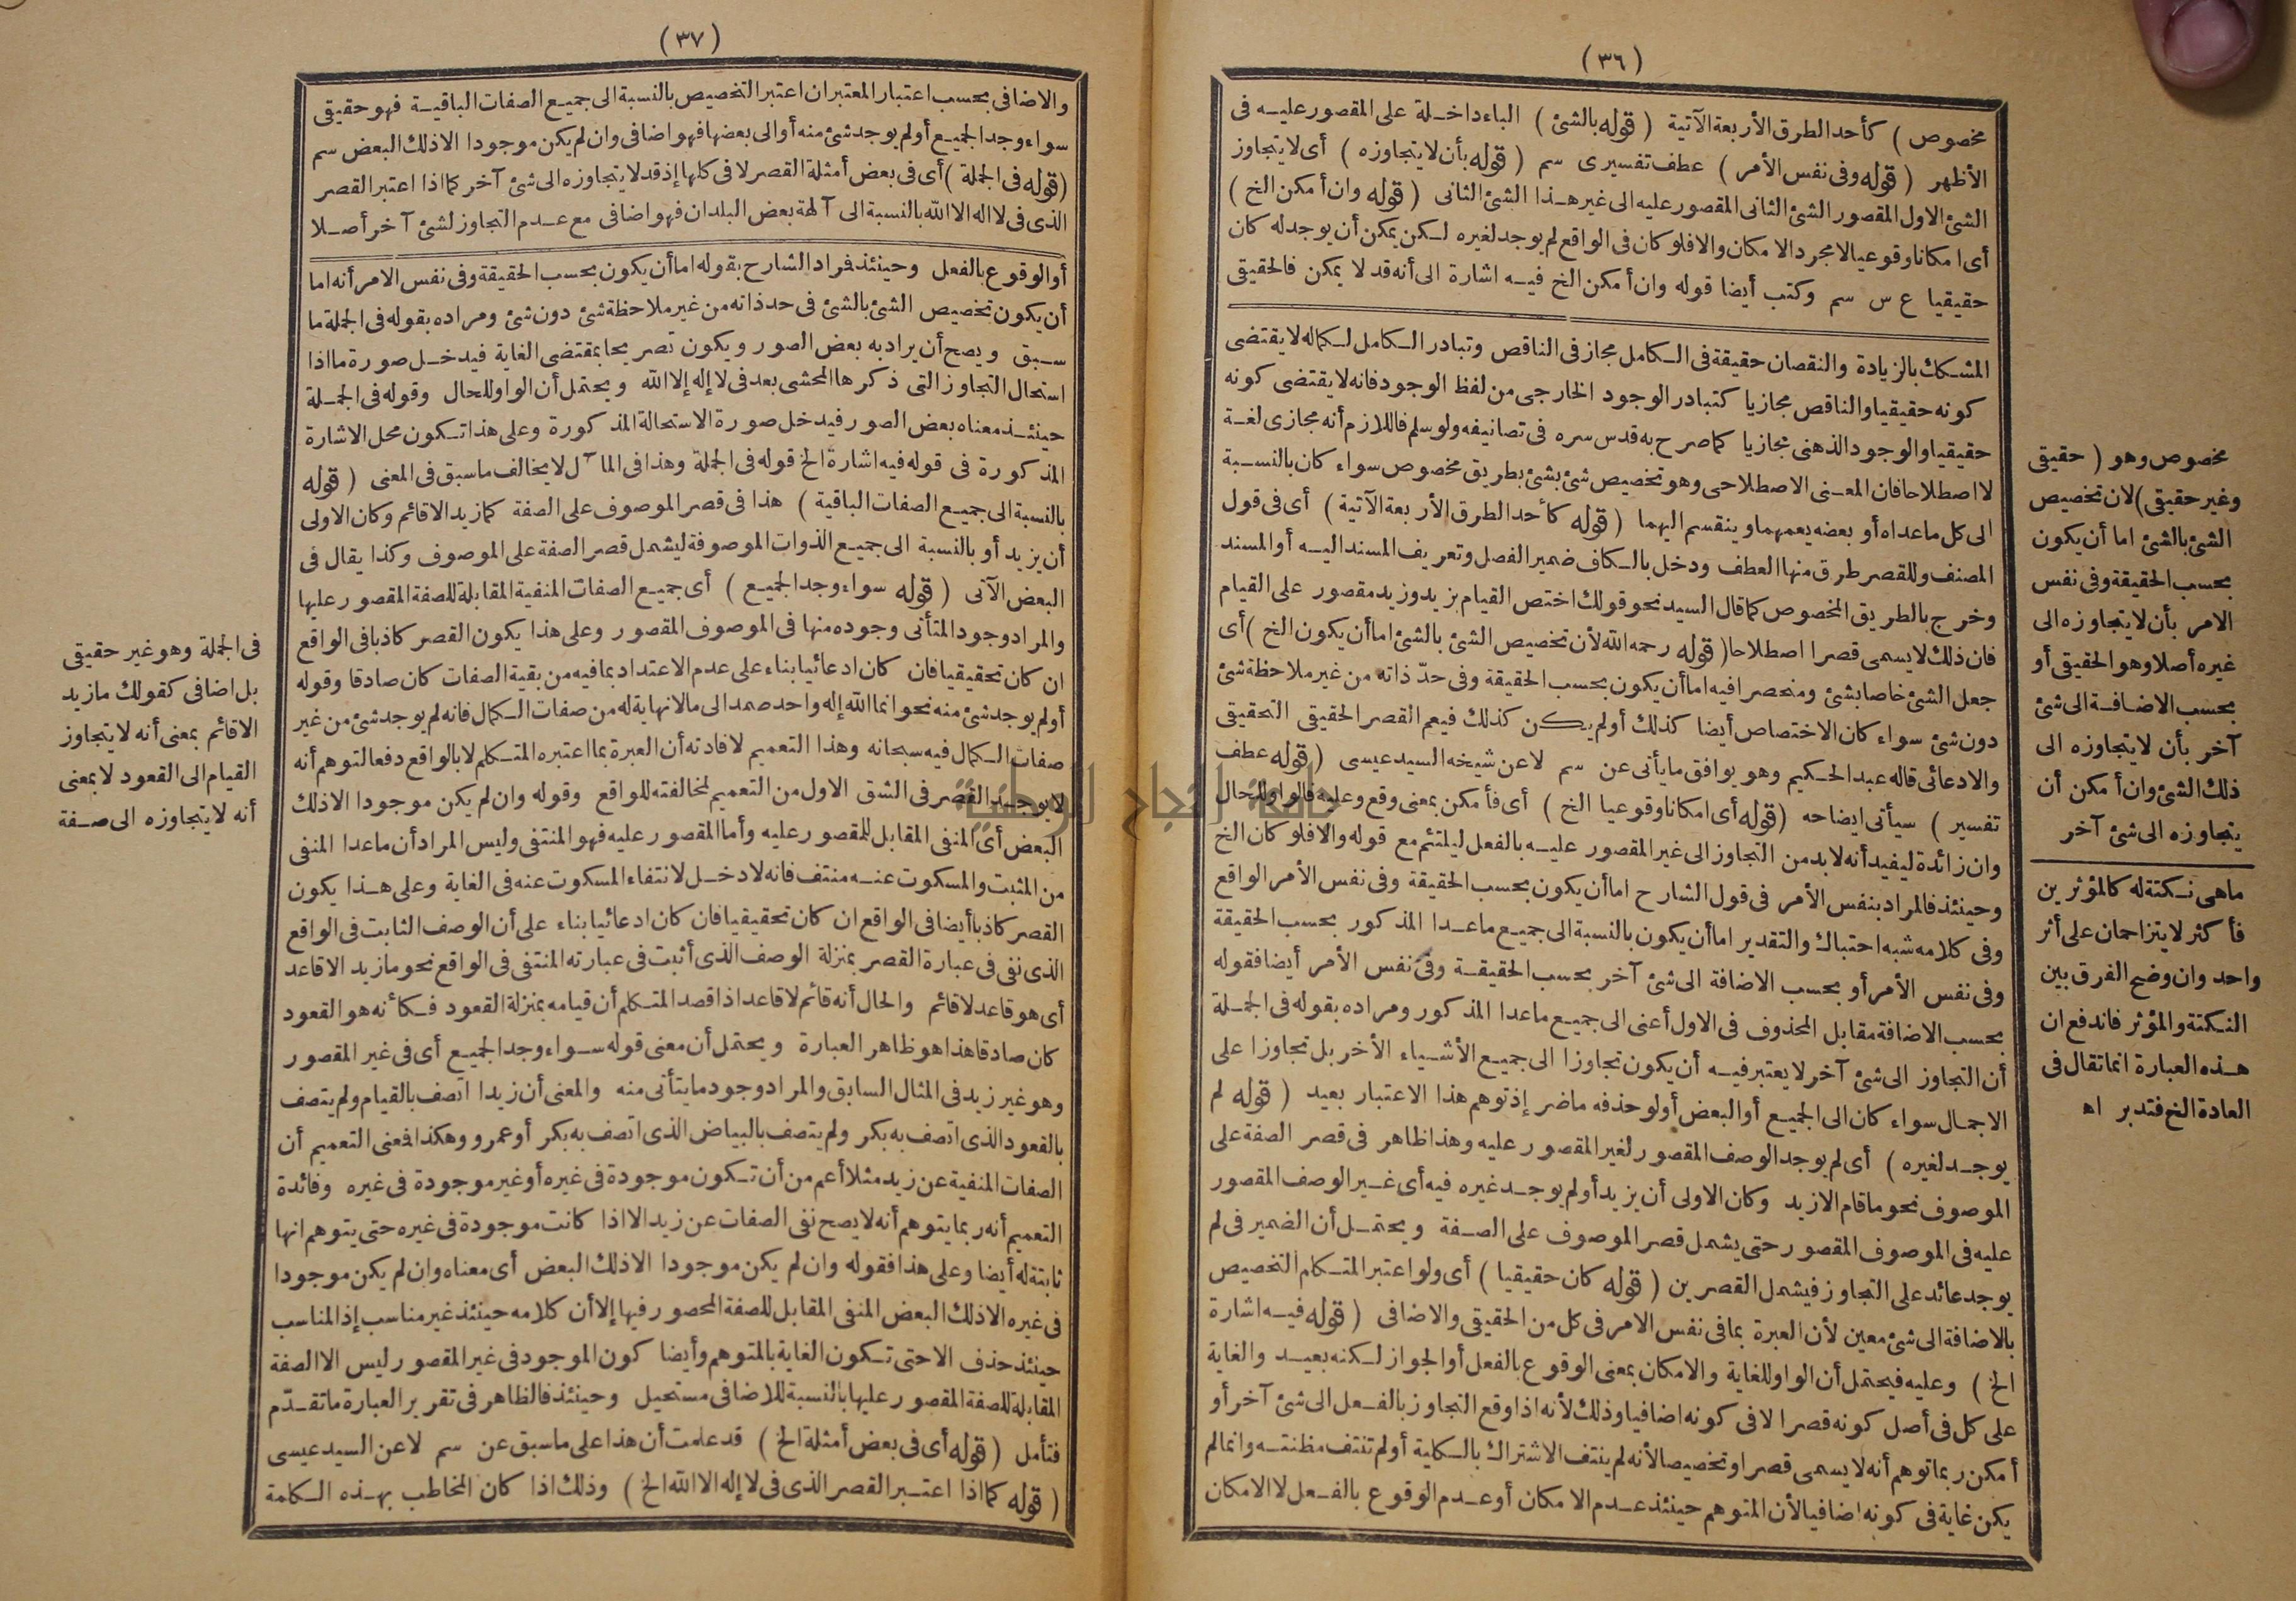 (٣٦)
مخصوص ) كأحد الطرق الأربعة الآتية ( قوله بالشئ ) الباء داخلة على المقصور عليه فى
الأظهر ( قوله وفى نفس الأمر ) عطف تفسيرى سم ( قوله بأن لا يتجاوزه ) أى لا يتجاوز
الشئ الاول المقصور الشئ الثانى المقصور عليه الى غير هذا الشئ الثانى ( قوله وان أمكن الخ )
أى امكانا وقوعيا لا مجرد الامكان والا فلو كان فى الواقع لم يوجد لغيره لكن يمكن أن يوجد له كان
حقيقيا ع س سم وكتب أيضا قوله وان أمكن الخ فيه اشارة الى أنه قد لا يمكن فالحقيقى
المشكك بالزيادة والنقصان حقيقة فى الكامل مجاز فى الناقص وتبادر الكامل لكماله لا يقتضى
كونه حقيقيا والناقص مجازيا كتبادر الوجود الخارجى من لفظ الوجود فانه لا يقتضى كونه
حقيقيا والوجود الذهنى مجازيا كما صرح به قدس سره فى تصانيفه ولو سلم فاللازم أنه مجازى لغة
لا اصطلاحا فان المعنى الاصطلاحى وهو تخصيص شئ بشئ بطريق مخصوص سواء كان بالنسبة
الى كل ما عداه أو بعضه يعمهما وينقسم اليهما ( قوله كأحد الطرق الأربعة الآتية ) أى فى قول
المصنف وللقصر طرق منها العطف ودخل بالكاف ضمير الفصل وتعريف المسند اليه أو المسند
وخرج بالطريق المخصوص كما قال السيد نحو قولك اختص القيام بزيد وزيد مقصور على القيام
فان ذلك لا يسمى قصرا اصطلاحا ( قوله رحمه الله لأن تخصيص الشئ بالشئ اما أن يكون الخ ) أى
جعل الشئ خاصا بشئ ومنحصرا فيه اما أن يكون بحسب الحقيقة وفى حدّ ذاته من غير ملاحظة شئ
دون شئ سواء كان الاختصاص أيضا كذلك أو لم يكن كذلك فيعم القصر الحقيقى التحقيقى
والادعائى قاله عبد الحكيم وهو يوافق ما يأتى عن سم لا عن شيخه السيد عيسى ( قوله عطف
تفسير ) سيأتى ايضاحه ( قوله أى امكانا وقوعيا الخ ) أى فأمكن بمعنى وقع وعليه فالواو للحال
وان زائدة ليفيد أنه لا بد من التجاوز الى غير المقصور عليه بالفعل ليلتئم مع قوله والا فلو كان الخ
وحينئذ فالمراد بنفس الأمر فى قول الشارح اما أن يكون بحسب الحقيقة وفى نفس الأمر الواقع
وفى كلامه شبه احتباك والتقدير اما أن يكون بالنسبة الى جميع ما عدا المذكور بحسب الحقيقة
وفى نفس الأمر أو بحسب الاضافة الى شئ آخر بحسب الحقيقة وفى نفس الأمر أيضا فقوله
بحسب الاضافة مقابل المحذوف فى الاول أعنى الى جميع ما عدا المذكور ومراده بقوله فى الجملة
أن التجاوز الى شئ آخر لا يعتبر فيه أن يكون تجاوزا الى جميع الأشياء الأخر بل تجاوزا على
الاجمال سواء كان الى الجميع أو البعض أو لو حذفه ما ضر إذ توهم هذا الاعتبار بعيد ( قوله لم
يوجد لغيره ) أى لم يوجد الوصف المقصور لغير المقصور عليه وهذا ظاهر فى قصر الصفة على
الموصوف نحو ما قام الا زيد وكان الاولى أن يزيد أو لم يوجد غيره فيه أى غير الوصف المقصور
عليه فى الموصوف المقصور حتى يشمل قصر الموصوف على الصفة ويحتمل أن الضمير فى لم
يوجد عائد على التجاوز فيشمل القصرين ( قوله كان حقيقيا ) أى ولو اعتبر المتكلم التخصيص
بالاضافة الى شئ معين لأن العبرة بما فى نفس الامر فى كل من الحقيقى والاضافى ( قوله فيه اشارة
الخ ) وعليه فيحتمل أن الواو للغاية والامكان بمعنى الوقوع بالفعل أو الجواز لكنه بعيد والغاية
على كل فى أصل كونه قصرا لا فى كونه اضافيا وذلك لأنه اذا وقع التجاوز بالفعل الى شئ آخر أو
أمكن ربما توهم أنه لا يسمى قصرا وتخصيصا لأنه لم ينتف الاشتراك بالكلية أو لم تنتف مظنته وانما لم
يكن غاية فى كونه اضافيا لأن المتوهم حينئذ عدم الامكان أو عدم الوقوع بالفعل لا الامكان
مخصوص وهو ( حقيقى
وغير حقيقى ) لان تخصيص
الشئ بالشئ اما أن يكون
بحسب الحقيقة وفى نفس
الامر بأن لا يتجاوزه الى
غيره أصلا وهو الحقيقى أو
بحسب الاضافة الى شئ
آخر بأن لا يتجاوزه الى
ذلك الشئ وان أمكن أن
يتجاوزه الى شئ آخر
ما هى نكتة له كالمؤثرين
فأكثر لا يتزاحمان على أثر
واحد وان وضح الفرق بين
النكتة والمؤثر فاندفع ان
هذه العبارة انما تقال فى
العادة الخ فتدبر اه
(٣٧)
والاضافى بحسب اعتبار المعتبر ان اعتبر التخصيص بالنسبة الى جميع الصفات الباقية فهو حقيقى
سواء وجد الجميع أو لم يوجد شئ منه أو الى بعضها فهو اضافى وان لم يكن موجودا الا ذلك البعض سم
( قوله فى الجملة ) أى فى بعض أمثلة القصر لا فى كلها إذ قد لا يتجاوزه الى شئ آخر كما اذا اعتبر القصر
الذى فى لا اله الا الله بالنسبة الى آلهة بعض البلدان فهو اضافى مع عدم التجاوز لشئ آخر أصلا
أو الوقوع بالفعل وحينئذ فراد الشارح بقوله اما أن يكون بحسب الحقيقة وفى نفس الامر أنه اما
أن يكون تخصيص الشئ بالشئ فى حد ذاته من غير ملاحظة شئ دون شئ ومراده بقوله فى الجملة ما
سبق ويصح أن يراد به بعض الصور ويكون تصريحا بمقتضى الغاية فيدخل صورة ما اذا
استحال التجاوز التى ذكرها المحشى بعد فى لا إله إلا الله ويحتمل أن الواو للحال وقوله فى الجملة
حينئذ معناه بعض الصور فيدخل صورة الاستحالة المذكورة وعلى هذا تكون محل الاشارة
المذكورة فى قوله فيه اشارة الخ قوله فى الجملة وهذا فى المآل لا يخالف ما سبق فى المعنى ( قوله
بالنسبة الى جميع الصفات الباقية ) هذا فى قصر الموصوف على الصفة كما زيد الا قائم وكان الاولى
أن يزيد أو بالنسبة الى جميع الذوات الموصوفة ليشمل قصر الصفة على الموصوف وكذا يقال فى
البعض الآتى ( قوله سواء وجد الجميع ) أى جميع الصفات المنفية المقابلة للصفة المقصور عليها
والمراد وجود المتأتى وجوده منها فى الموصوف المقصور وعلى هذا يكون القصر كاذبا فى الواقع
ان كان تحقيقيا فان كان ادعائيا بناء على عدم الاعتداد بما فيه من بقية الصفات كان صادقا وقوله
أو لم يوجد شئ منه نحو انما الله إله واحد صمد الى ما لا نهاية له من صفات الكمال فانه لم يوجد شئ من غير
صفات الكمال فيه سبحانه وهذا التعميم لافادته أن العبرة بما اعتبره المتكلم لا بالواقع دفعا لتوهم أنه
لا يوجد القصر فى الشق الاول من التعميم لمخالفته للواقع وقوله وان لم يكن موجودا الا ذلك
البعض أى المنفى المقابل للمقصور عليه وأما المقصور عليه فهو المنتفى وليس المراد أن ما عدا المنفى
من المثبت والمسكوت عنه منتف فانه لا دخل لانتفاء المسكوت عنه فى الغاية وعلى هذا يكون
القصر كاذبا أيضا فى الواقع ان كان تحقيقيا فان كان ادعائيا بناء على أن الوصف الثابت فى الواقع
الذى نفى فى عبارة القصر بمنزلة الوصف الذى أثبت فى عبارته المنتفى فى الواقع نحو ما زيد الا قاعد
أى هو قاعد لا قائم والحال أنه قائم لا قاعد اذا قصد المتكلم أن قيامه بمنزلة القعود فكأنه هو القعود
كان صادقا هذا هو ظاهر العبارة ويحتمل أن معنى قوله سواء وجد الجميع أى فى غير المقصور
وهو غير زيد فى المثال السابق والمراد وجود ما يتأتى منه والمعنى أن زيدا اتصف بالقيام ولم يتصف
بالقعود الذى اتصف به بكر ولم يتصف بالبياض الذى اتصف به بكر أو عمرو وهكذا فمعنى التعميم أن
الصفات المنفية عن زيد مثلا أعم من أن تكون موجودة فى غيره أو غير موجودة فى غيره وفائدة
التعميم أنه ربما يتوهم أنه لا يصح نفى الصفات عن زيد الا اذا كانت موجودة فى غيره حتى يتوهم انها
ثابتة له أيضا وعلى هذا فقوله وان لم يكن موجودا الا ذلك البعض أى معناه وان لم يكن موجودا
فى غيره الا ذلك البعض المنفى المقابل للصفة المحصور فيها إلا أن كلامه حينئذ غير مناسب إذ المناسب
حينئذ حذف الا حتى تكون الغاية بالمتوهم وأيضا كون الموجود فى غير المقصور ليس الا الصفة
المقابلة للصفة المقصور عليها بالنسبة للاضافى مستحيل وحينئذ فالظاهر فى تقرير العبارة ما تقدّم
فتأمل ( قوله أى فى بعض أمثلة الخ ) قد علمت أن هذا على ما سبق عن سم لا عن السيد عيسى
( قوله كما اذا اعتبر القصر الذى فى لا إله الا الله الخ ) وذلك اذا كان المخاطب بهذه الكلمة
فى الجملة وهو غير حقيقى
بل اضافى كقولك ما زيد
الا قائم بمعنى أنه لا يتجاوز
القيام الى القعود لا بمعنى
أنه لا يتجاوزه الى صفة
جامعة النجاح الوطنية